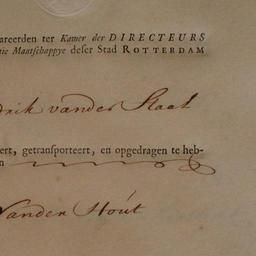 areerden ter Kamer der DIRECTEURS
tie Maatschappye deser Stad ROTTERDAM
drik vander Staal
eert, getransporteert, en opgedragen te heb-
n
Vanden Hout